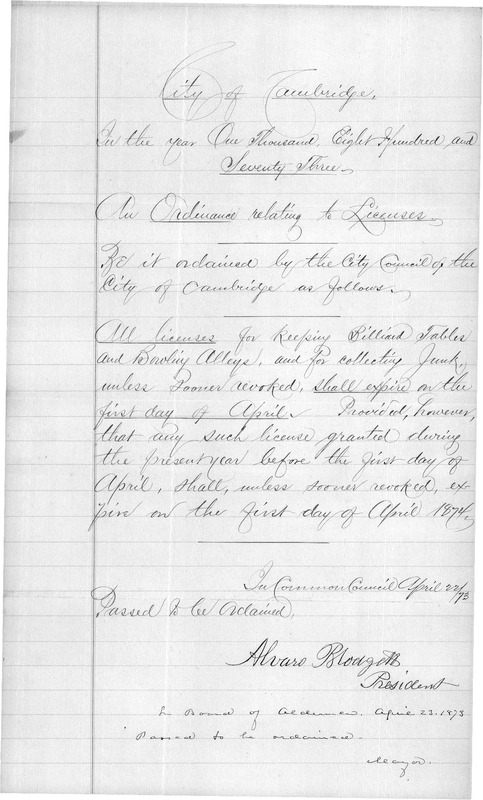 City of Cambridge.
In the year One Thousand Eight Hundred and
Seventy Three.
An Ordinance relating to Licenses.
Be it ordained by the City Council of the
City of Cambridge as follows.
All licenses for keeping Billiard Tables
and Bowling Alleys, and for collecting Junk,
unless sooner revoked, shall expire on the
first day of April. Provided, however,
that any such license granted during
the present year before the first day of
April, shall, unless sooner revoked, ex-
pire on the first day of April 1874.
In Common Council April 22/73
Passed to be Ordained,
Alvaro Blodgett
President
In Board of Aldermen. April 23. 1873
Passed to be ordained.
Mayor.